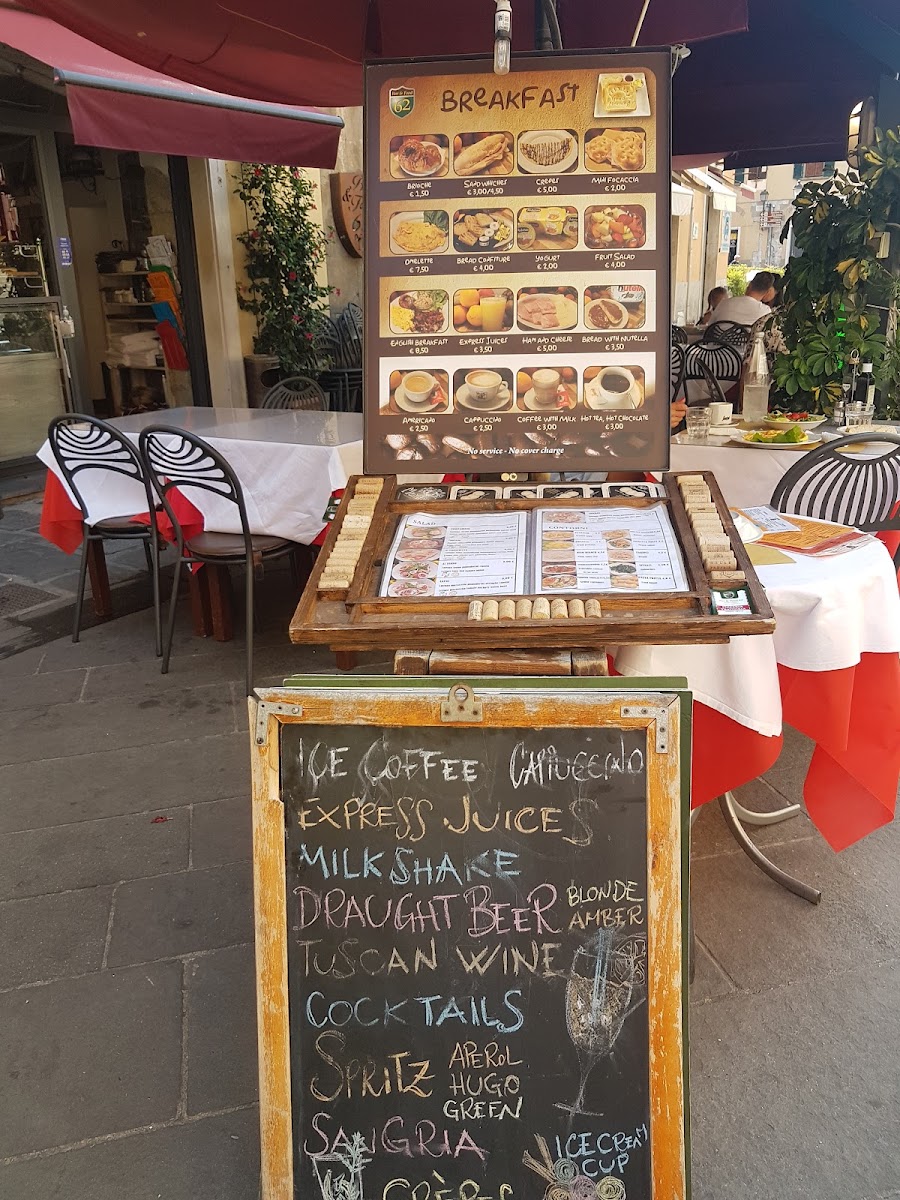 62
BREAKFAST
BRIOCHE
€ 1,50
SANDWICHES
€ 3,00/4,50
CREPES
€ 5,00
MINI FOCACCIA
€ 2,00
OMELETTE
€ 7,50
BREAD CONFITURE
€ 4,00
YOGURT
€ 2,00
FRUIT SALAD
€ 4,00
ENGLISH BREAKFAST
€ 8,50
EXPRESS JUICES
€ 3,50
HAM AND CHEESE
€ 5,00
BREAD WITH NUTELLA
€ 3,50
AMERICANO
€ 2,50
CAPPUCCINO
€ 2,50
COFFEE WITH MILK
€ 3,00
HOT TEA, HOT CHOCOLATE
€ 3,00
No service - No cover charge
SALAD
CONTORNI
ICE COFFEE CAPPUCCINO
EXPRESS JUICES
MILKSHAKE
DRAUGHT BEER BLONDE
AMBER
TUSCAN WINE
COCKTAILS
SPRITZ APEROL
HUGO
GREEN
SANGRIA
ICE CREAM
CUP
CRÈPES